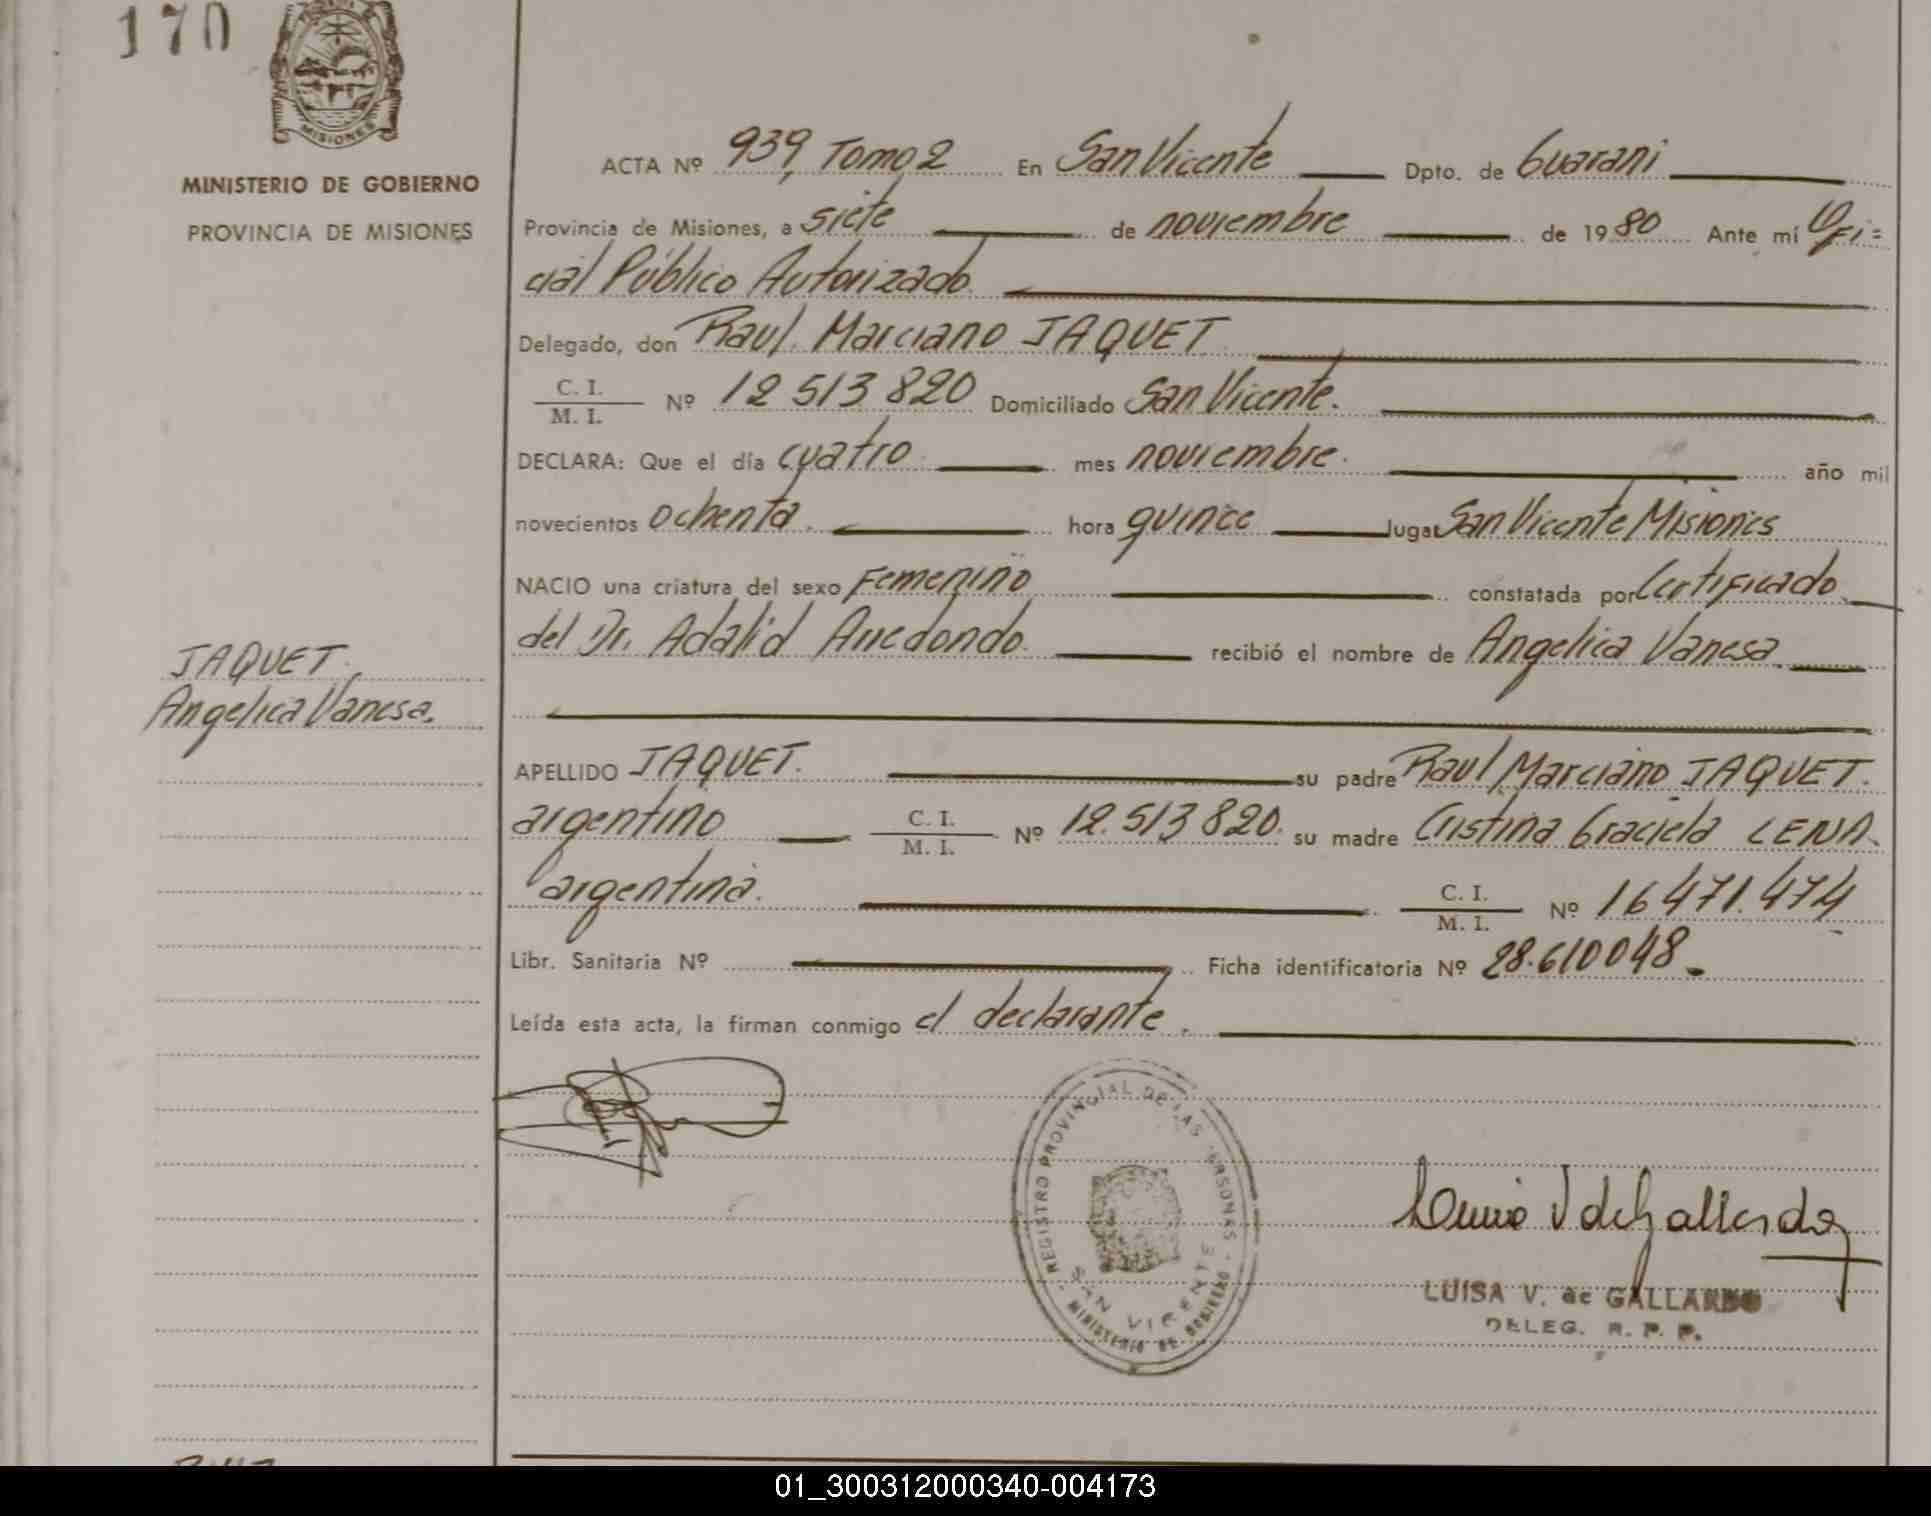 170
MISIONES
MINISTERIO DE GOBIERNO
PROVINCIA DE MISIONES
JAQUET.
Angelica Vanesa.
ACTA Nº 939, Tomo 2 En San Vicente Dpto. de Guarani
Provincia de Misiones, a siete de noviembre de 1980 Ante mí Ofi=
cial Público Autorizado.
Delegado, don Raul. Marciano JAQUET
C. I.
M. I. Nº 12 513 820 Domiciliado San Vicente.
DECLARA: Que el día cuatro mes noviembre. año mil
novecientos ochenta. hora quince lugar San Vicente Misiones
NACIO una criatura del sexo Femenino constatada por Certificado
del Dr. Adalid Arredondo. recibió el nombre de Angelica Vanesa
APELLIDO JAQUET. su padre Raul Marciano JAQUET.
argentino C. I.
M. I. Nº 12.513 820. su madre Cristina Graciela LENA
argentina. C. I.
M. I. Nº 16 471.474
Libr. Sanitaria Nº Ficha identificatoria Nº 28.610048
Leída esta acta, la firman conmigo el declarante.
REGISTRO PROVINCIAL DE LAS PERSONAS
SAN VICENTE
MINISTERIO DE GOBIERNO
LUISA V. de GALLARDO
DELEG. R. P. P.
01_300312000340-004173